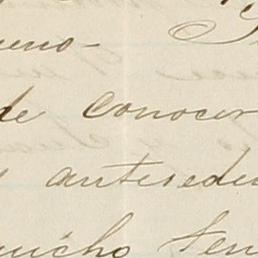 ueno-
de conocer
antecede
mucho ten